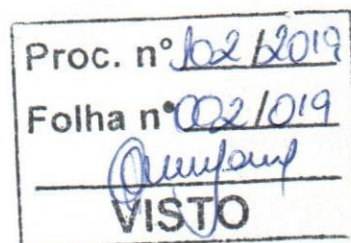 Proc. nº 102/2019
Folha nº 002/019
VISTO